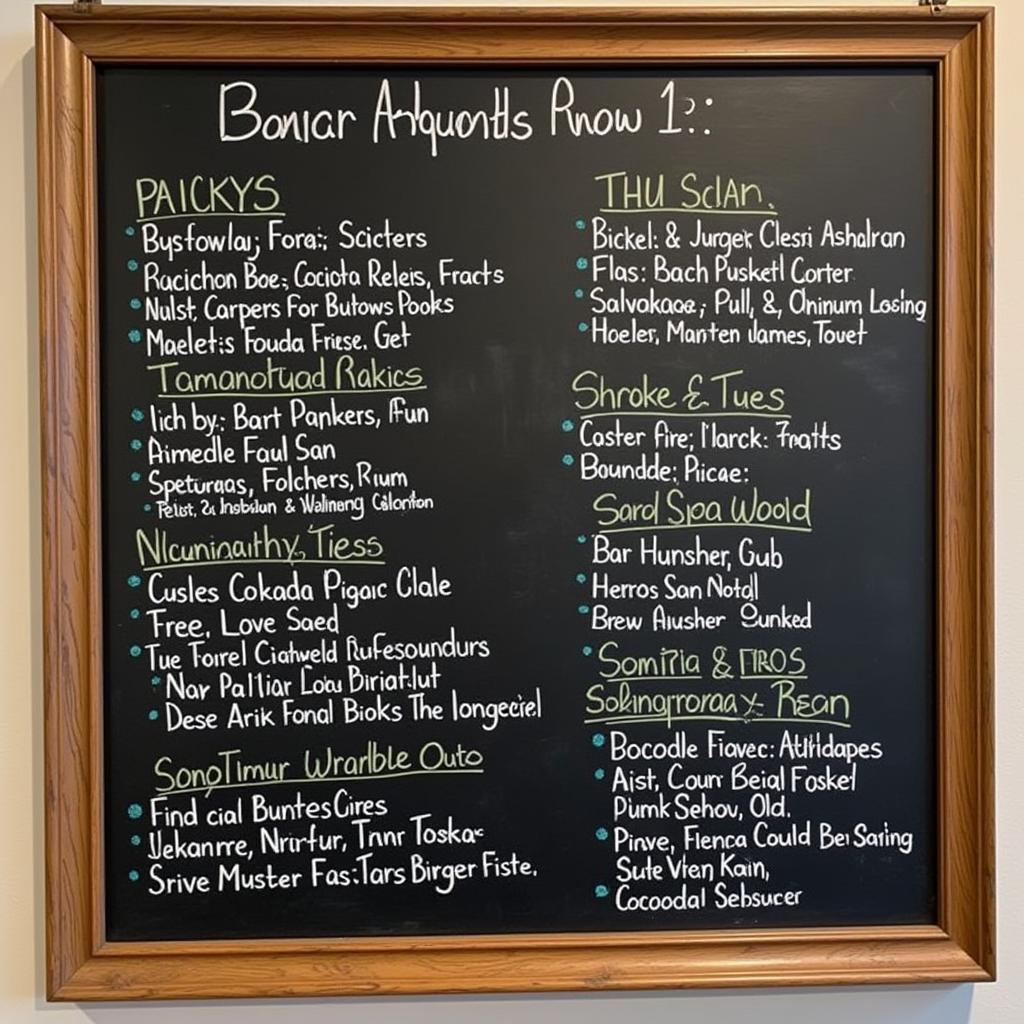 Boniar Arlquontls Rnow 1?:
PAICKYS
Bysfowlay; Fora:; Scicters
Racichon Boe; Cociota Releis, Fracts
Nulst, Carpers For Butows Pooks
Maelet:s Fouda Friese. Get
Tamanotyad Rakics
Iich by: Bart Pankers, Fun
Aimedle Faul San
Speturaas, Folchers, Rium
& Walineng
Nlcuninaithy, Tiess
Cusles Cokada Pigaic Clale
Free, Love Saed
Tue Torel Ciatweld Rufesoundurs
Nar Paltiar Lou Biriat.lut
Dese Arik Fonal Bioks The longeciel
SonoTimur Wrarlble Outo
Find cial Buntes Cires
Uekanrre, Nrirfur, Tnnr Toskar
Srive Muster Fas:Tars Birger Fiste.
THU Sclan.
Bickel: & Jurger Clesri Ashalran
Flas: Bach Pusketl Corter
Salvakaae; Pull, &, Oninum Losing
Hoeler, Manten James, Touet
Shroke & Tues
Caster fire; Marck: Fratts
Boundde; Picae:
Sard Spa Woold
Bar Hunsher, Gub
Herros San Notal
Brew Ausher Sunked
Somitia & TIROS
Solingproray- Rean
Bocodle Fiavec: Atlridapes
Aist, Courr Beial Foskel
Pumk Sehov, Old.
Pinve, Fienca Could Be Saring
Sute Vren Kain,
Cocoodal Sebsucer